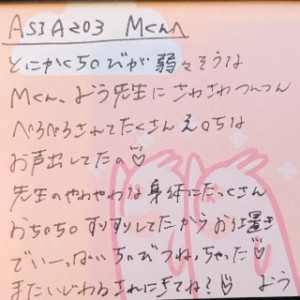 ASIA203 Mくんへ
とにかくち○びが弱々そうな
Mくん、よう先生に さわさわつんつん
ぺろぺろされてたくさんえ○ちな
お声出してたの♡
先生のやわやわな身体にたっくさん
おち○ち○すりすりしてたからお仕置き
でいーっぱいち○びつねっちゃった♡
またいじわるされにきてね?♡ よう